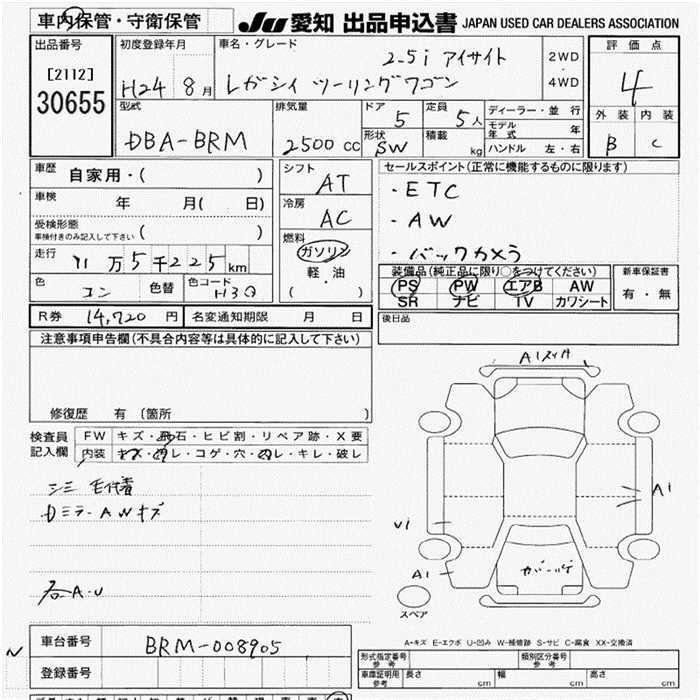 車内保管・守衛保管
JU 愛知 出品申込書 JAPAN USED CAR DEALERS ASSOCIATION
出品番号
[2112]
30655
初度登録年月
H24 8月
車名・グレード
2.5i アイサイト
レガシィ ツーリングワゴン
2WD
4WD
評価点
4
外装 内装
B C
型式
DBA-BRM
排気量
2500 cc
ドア 5
定員 5人
形状 SW
積載 kg
ディーラー・並行
モデル年式 年
ハンドル 左・右
車歴 自家用・( )
車検 年 月( 日)
受検形態
車検付きのみ記入して下さい ( )
走行 万5千225km
色 コン 色替 色コード H3Q
シフト AT
冷房 AC
燃料
ガソリン
軽・油
( )
セールスポイント(正常に機能するものに限ります)
・ETC
・AW
・バックカメラ
装備品(純正品に限り○をつけてください)
PS PW エアB AW
SR ナビ TV カワシート
新車保証書
有・無
R券 14,720円 名変通知期限 月 日
後日品
注意事項申告欄(不具合内容等は具体的に記入して下さい)
修復歴 有 (箇所 )
検査員
記入欄
FW キズ・飛石・ヒビ割・リペア跡・X要
内装 キズ・汚レ・コゲ・穴・スレ・キレ・破レ
シミ 毛付着
Dミラー AWキズ
各A・U
A1
A1
A1
カバーハゲ
スペア
A-キズ E-エクボ U-凹み W-補修跡 S-サビ C-腐食 XX-交換済
N
車台番号 BRM-008905
登録番号
形式指定番号 参考
類別区分番号 参考
車庫証明用 参考 長さ cm 幅 cm 高さ cm